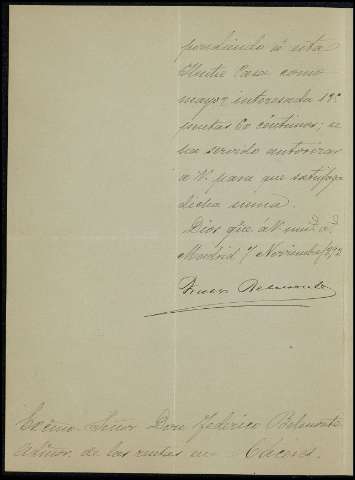 pondiendo á esta
Ilustre Casa como
mayor interesada 19
pesetas 60 céntimos; se
ha servido autorizar
a V. para que satisfaga
dicha suma.
Dios gue. á V. ms. as.
Madrid 7 Noviembre
Belmonte
Excmo. Señor Don Federico Belmonte
Admor. de las rentas en Cáceres.